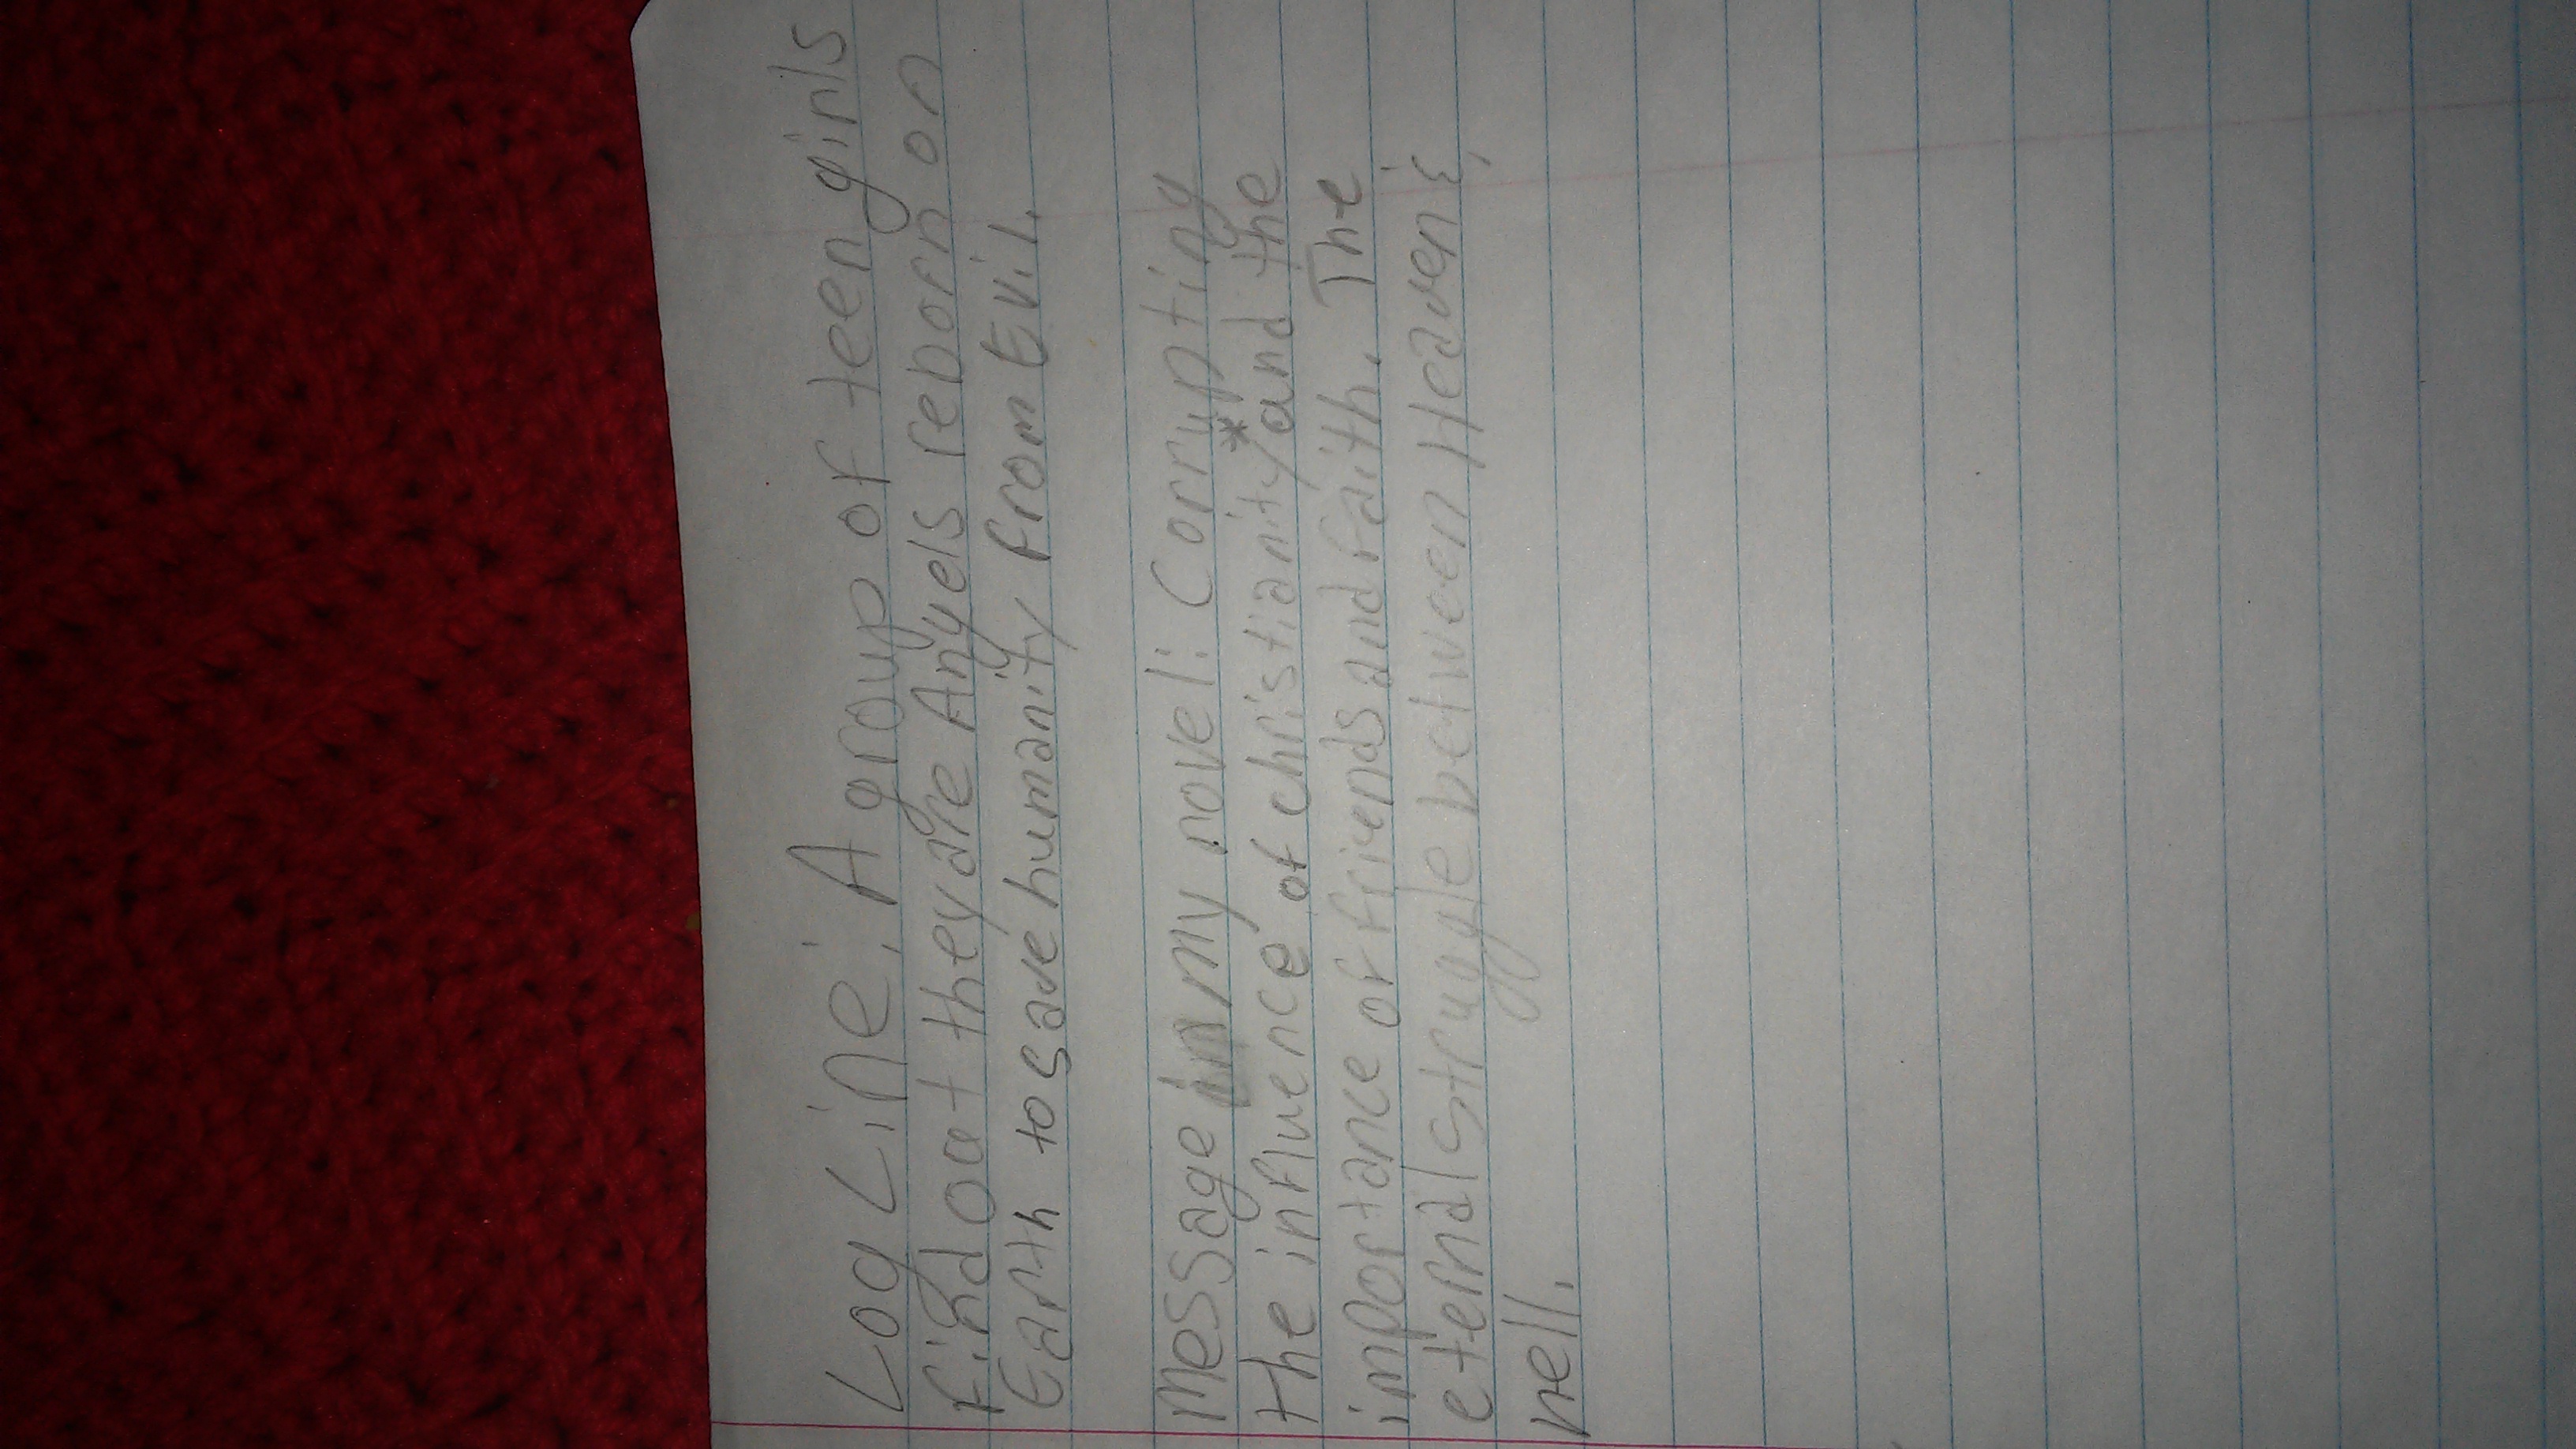 Log Line: A group of teen girls
find out they are Angels reborn on
Earth to save humanity from Evil.
Message in my novel: Corrupting
the influence of christianity* and the
importance of friends and faith. The
eternal struggle between Heaven &
hell.